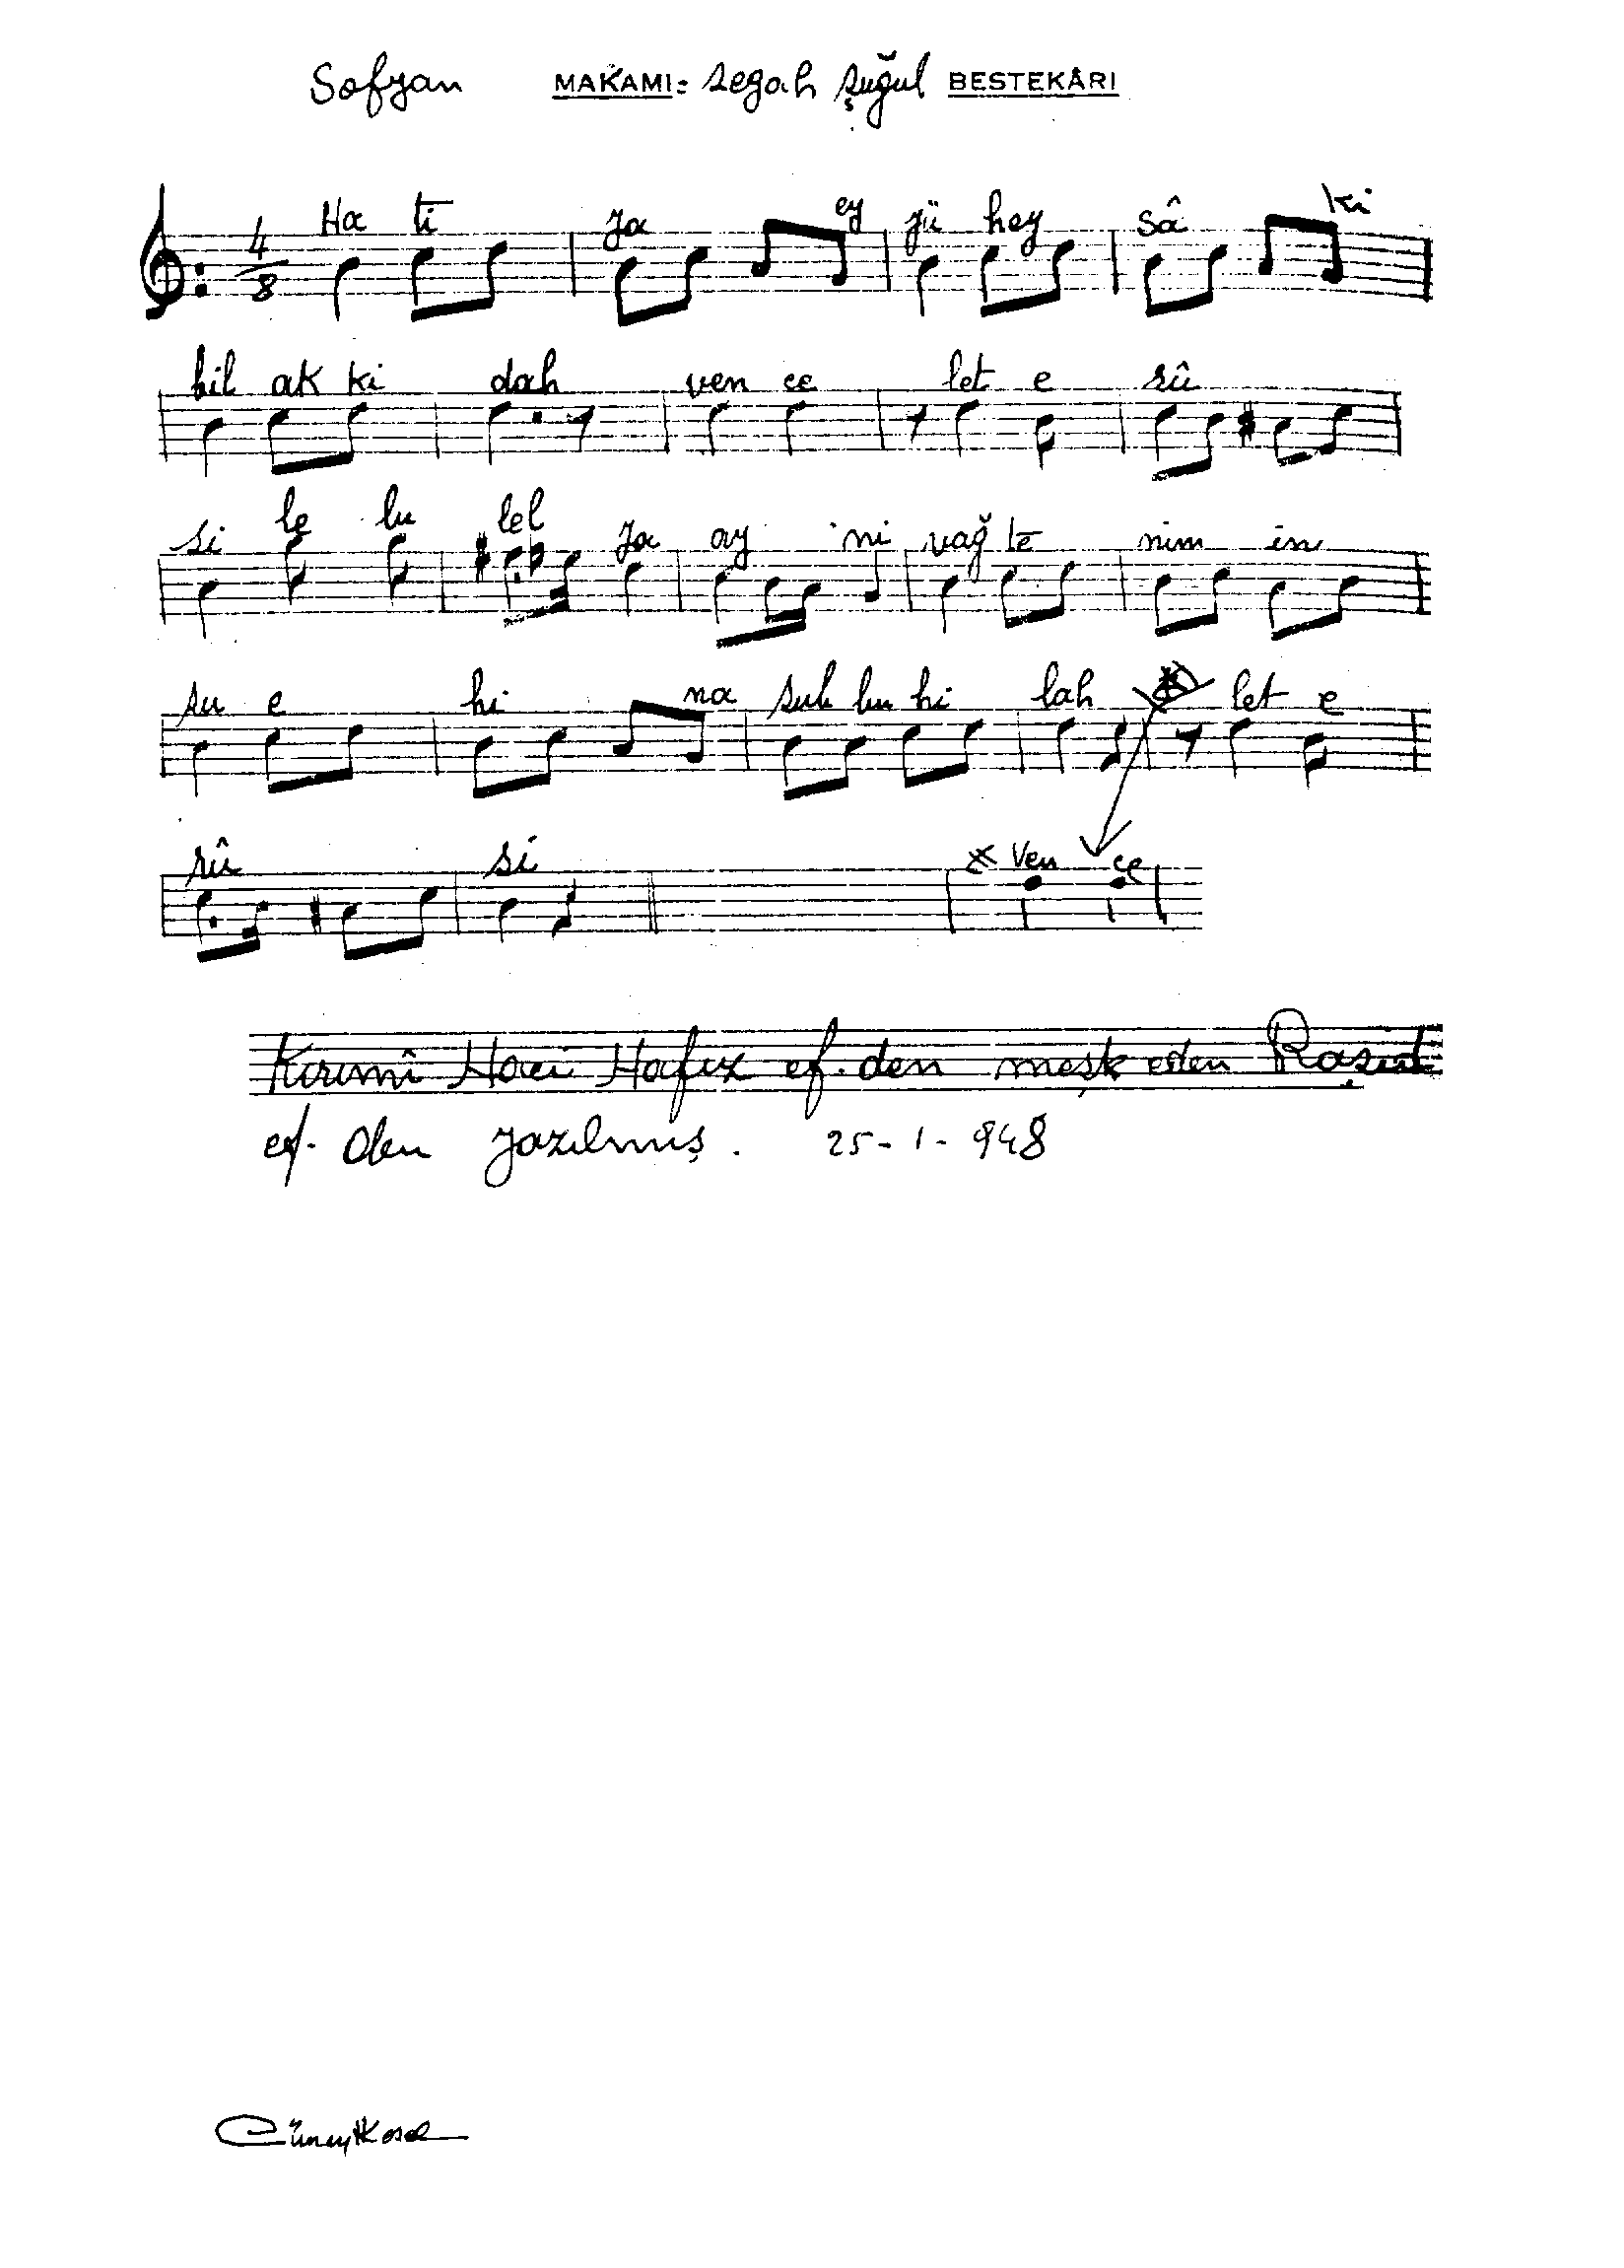 Sofyan MAKAMI: segah şuğul BESTEKÂRI
4/8 Ha ti ya ey yü hey sâ ki
bil ak ki dah ven ce let e rû
si le bu lel ya ay ni vağ te nim in
su e hi na sub bu hi lah let e
rû si ven ce
Kırımî Hacı Hafız ef. den meşk eden Raşid
ef. den yazılmış. 25-1-948